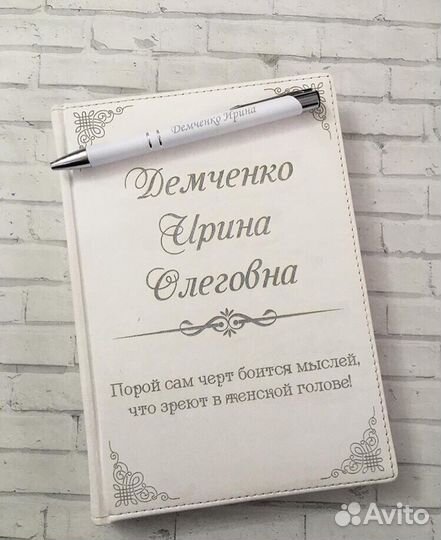 Демченко Ирина
Демченко
Ирина
Олеговна
Порой сам черт боится мыслей,
что зреют в женской голове!
Avito